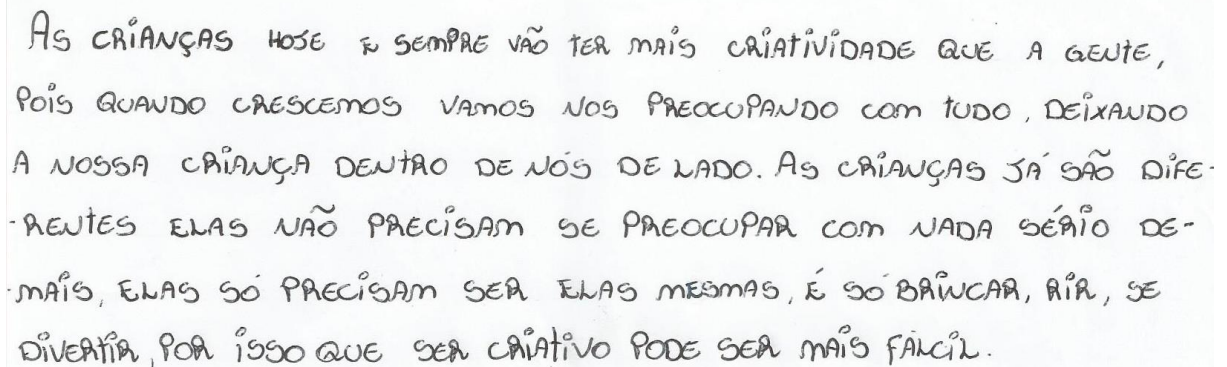 AS CRIANÇAS HOJE E SEMPRE VÃO TER MAIS CRIATIVIDADE QUE A GENTE,
POIS QUANDO CRESCEMOS VAMOS NOS PREOCUPANDO COM TUDO, DEIXANDO
A NOSSA CRIANÇA DENTRO DE NÓS DE LADO. AS CRIANÇAS JÁ SÃO DIFE-
-RENTES ELAS NÃO PRECISAM SE PREOCUPAR COM NADA SÉRIO DE-
-MAIS, ELAS SÓ PRECISAM SER ELAS MESMAS, É SÓ BRINCAR, RIR, SE
DIVERTIR, POR ISSO QUE SER CRIATIVO PODE SER MAIS FÁLCIL.